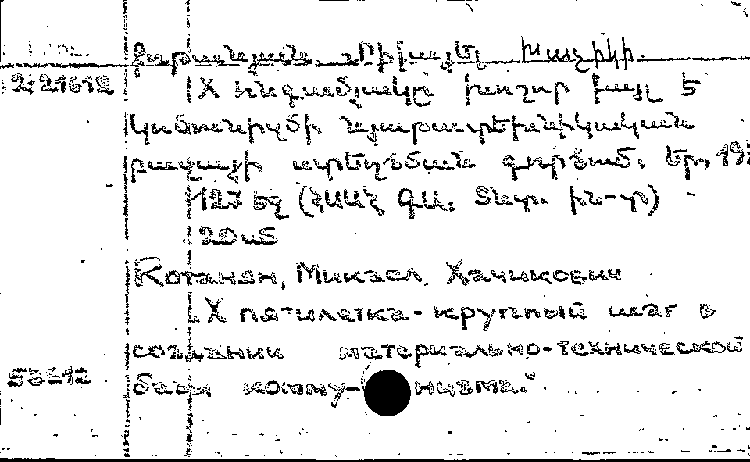 Քոթանյան Միքայել Խաչիկի.
2:21612 X հնգամյակը խոշոր քայլ է
կոմունիզմի նյութատեխնիկական
բազայի ստեղծման գործում. Եր., 19
127 էջ (ՀՍՍՀ ԳԱ. Տնտ. ին-տ)
Котанян, Микаел Хачикович
X пятилетка-крупный шаг в
создании материально-технической
базы комму-низма.